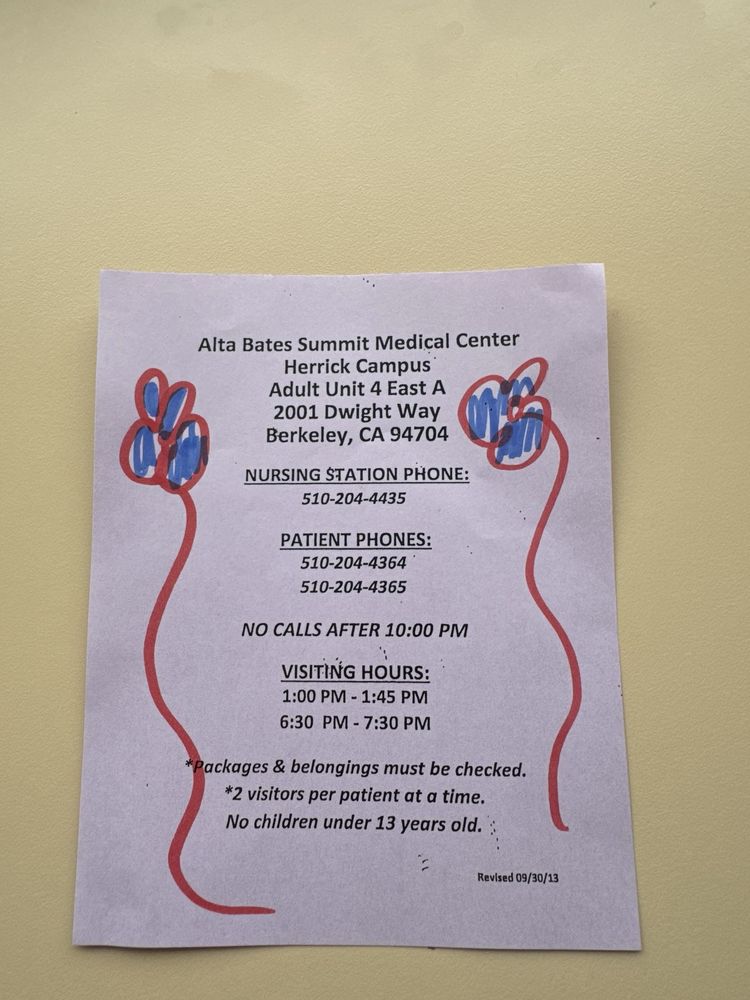 Alta Bates Summit Medical Center
Herrick Campus
Adult Unit 4 East A
2001 Dwight Way
Berkeley, CA 94704
NURSING STATION PHONE:
510-204-4435
PATIENT PHONES:
510-204-4364
510-204-4365
NO CALLS AFTER 10:00 PM
VISITING HOURS:
1:00 PM - 1:45 PM
6:30 PM - 7:30 PM
*Packages & belongings must be checked.
*2 visitors per patient at a time.
No children under 13 years old.
Revised 09/30/13